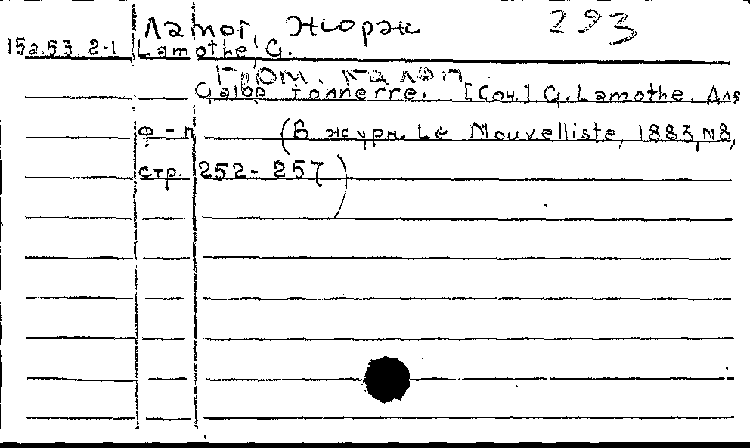 Ламот, Жорж 293
15а.53 2-1 Lamothe, G.
Гром. галоп
Galop Tonnerre. [Соч.] G. Lamothe. Для
ф-п (В журн. Le Nouvelliste, 1883, №8,
стр. 252-257)